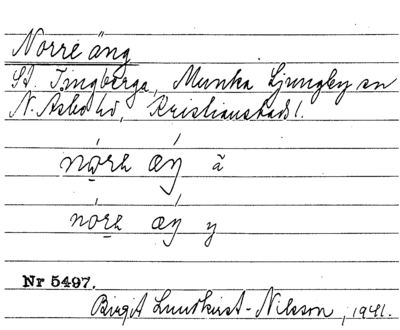 Norre äng
St. Tingberga, Munka Ljungby sn
N. Åsbo hd, Kristianstads l.
nǫ́rə æŋ́ ã
nórə æŋ́ y
Nr 5497.
Birgit Lundkvist-Nilsson, 1941.